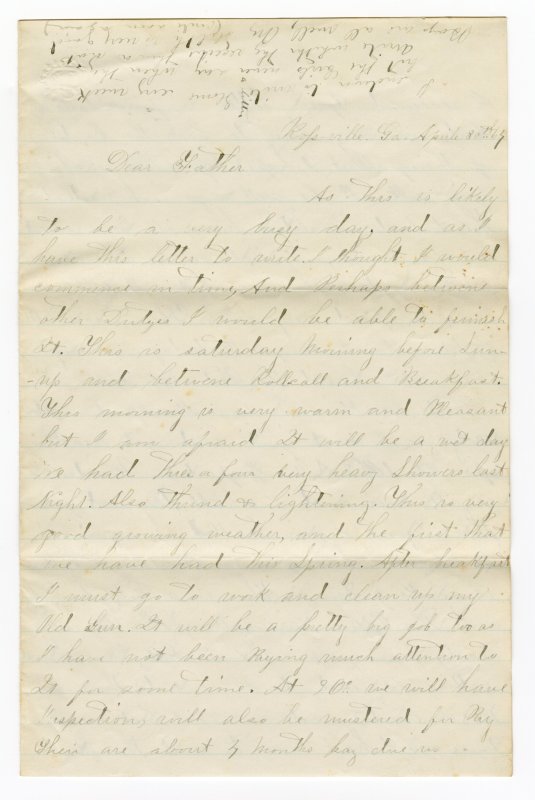 Ross ville, Ga. April 30th 64
Dear Father
As this is likely
to be a very busy day, and as I
have this letter to write. I thought I would
commence in time, And Perhaps between
other Dutyes I would be able to finish
It. This is saturday Morning before Sun-
-up and betwene Rollcall and Breakfast.
This morning is very warm and Pleasant
but I am afraid It will be a wet day
we had three a four very heavy Showers last
Night. Also thund & lightening. This is very
good growing weather, and the first that
we have had this Spring. After breakfast
I must go to work and clean up my
Old Gun. It will be a pretty big job too as
I have not been Paying much attention to
It for some time. At 9 Oc. we will have
Inspection, will also be mustered for Pay
Their are about 4 Months pay due us
I
to write
Home every week
but the
never say when they
write whether they receive them
Boys are all well,
is very good